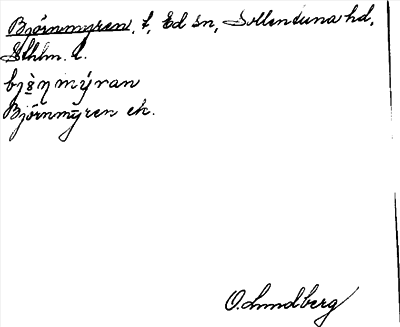 Björnmyren, t, Ed sn, Sollentuna hd,
Sthlm. l.
bjɜ̀ŋmýran
Björnmyren ek.
O. Lundberg